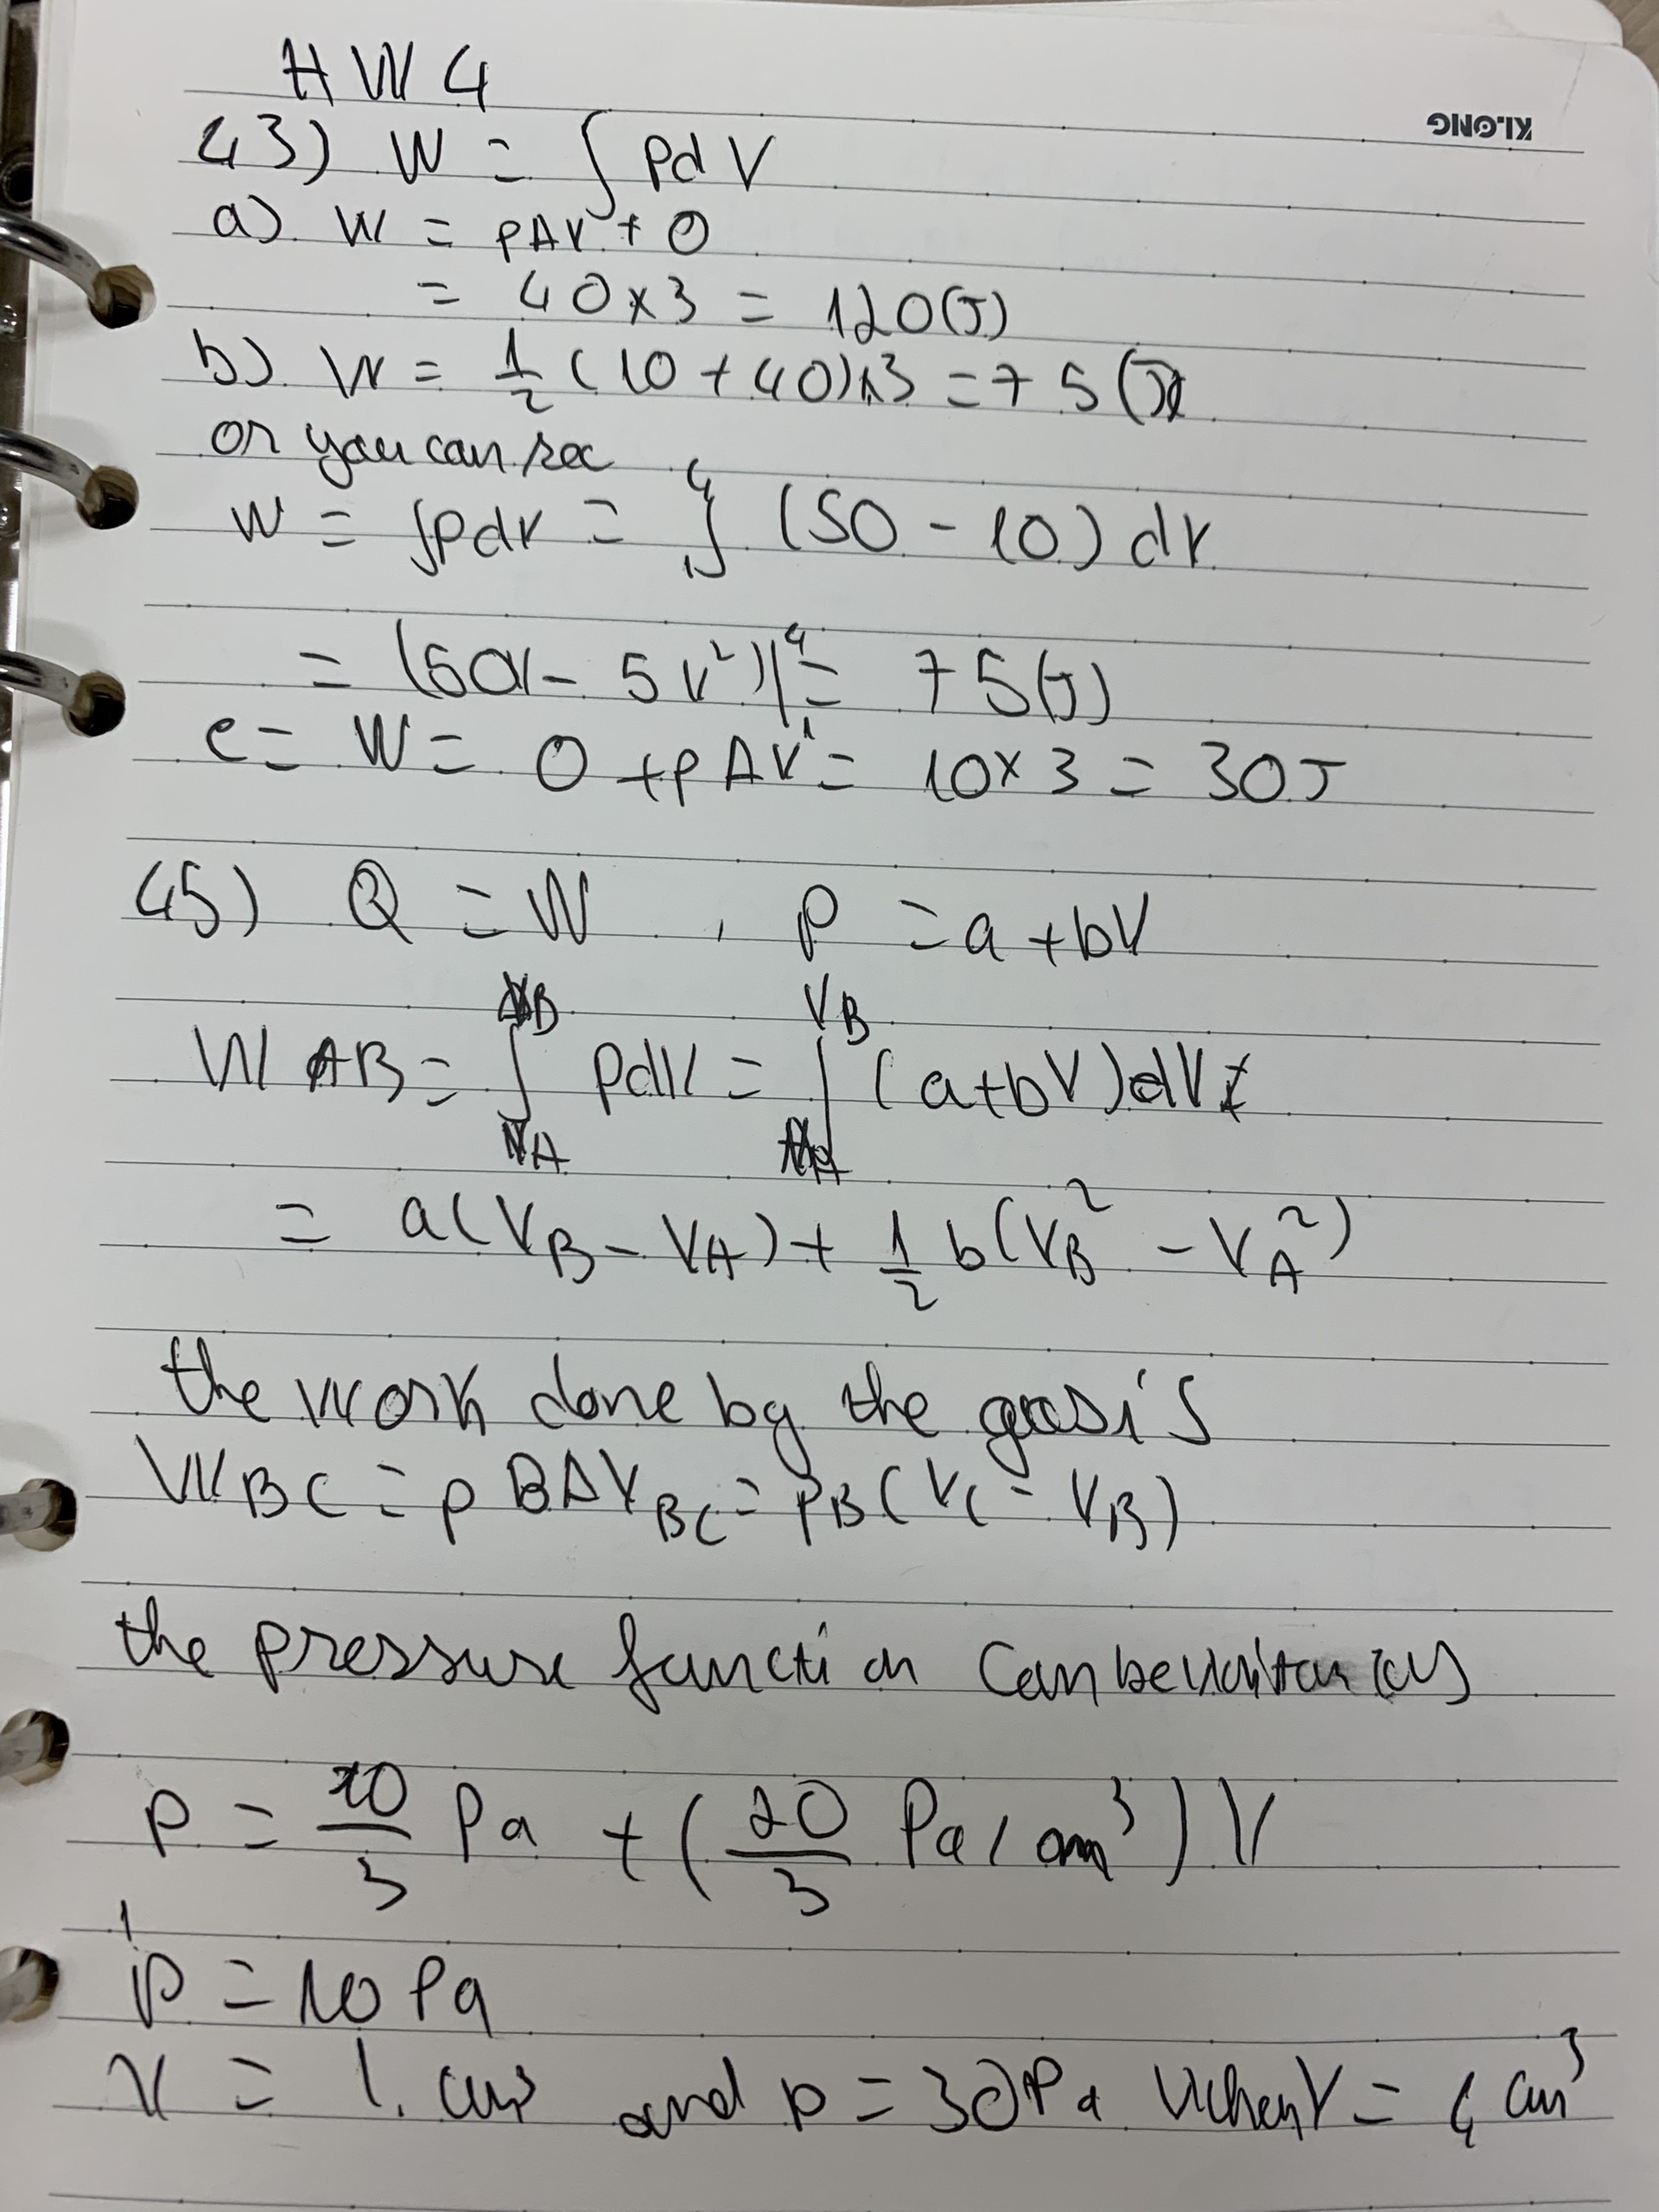 HW4
KLONG
43) W = ∫ pdV
a) W = pΔV + 0
= 40x3 = 120(J)
b) W = 1/2 (10 + 40)x3 = 75 (J)
or you can see
W = ∫pdV = ∫₁⁴ (50 - 10) dV
= (50V - 5V²)|₁⁴ = 75(J)
c = W = 0 + pΔV = 10x3 = 30J
45) Q = W , p = a + bV
W AB = ∫ VA VB pdV = ∫ VA VB (a+bV)dV
= a(VB - VA) + 1/2 b(VB² - VA²)
the work done by the gas is
W BC = p BΔV BC = pB(VC - VB)
the pressure function can be written as
P = 10/3 Pa + (20/3 Pa/cm³) V
P = 10 Pa
V = 1. cm³ and p = 30Pa when V = 4 cm³